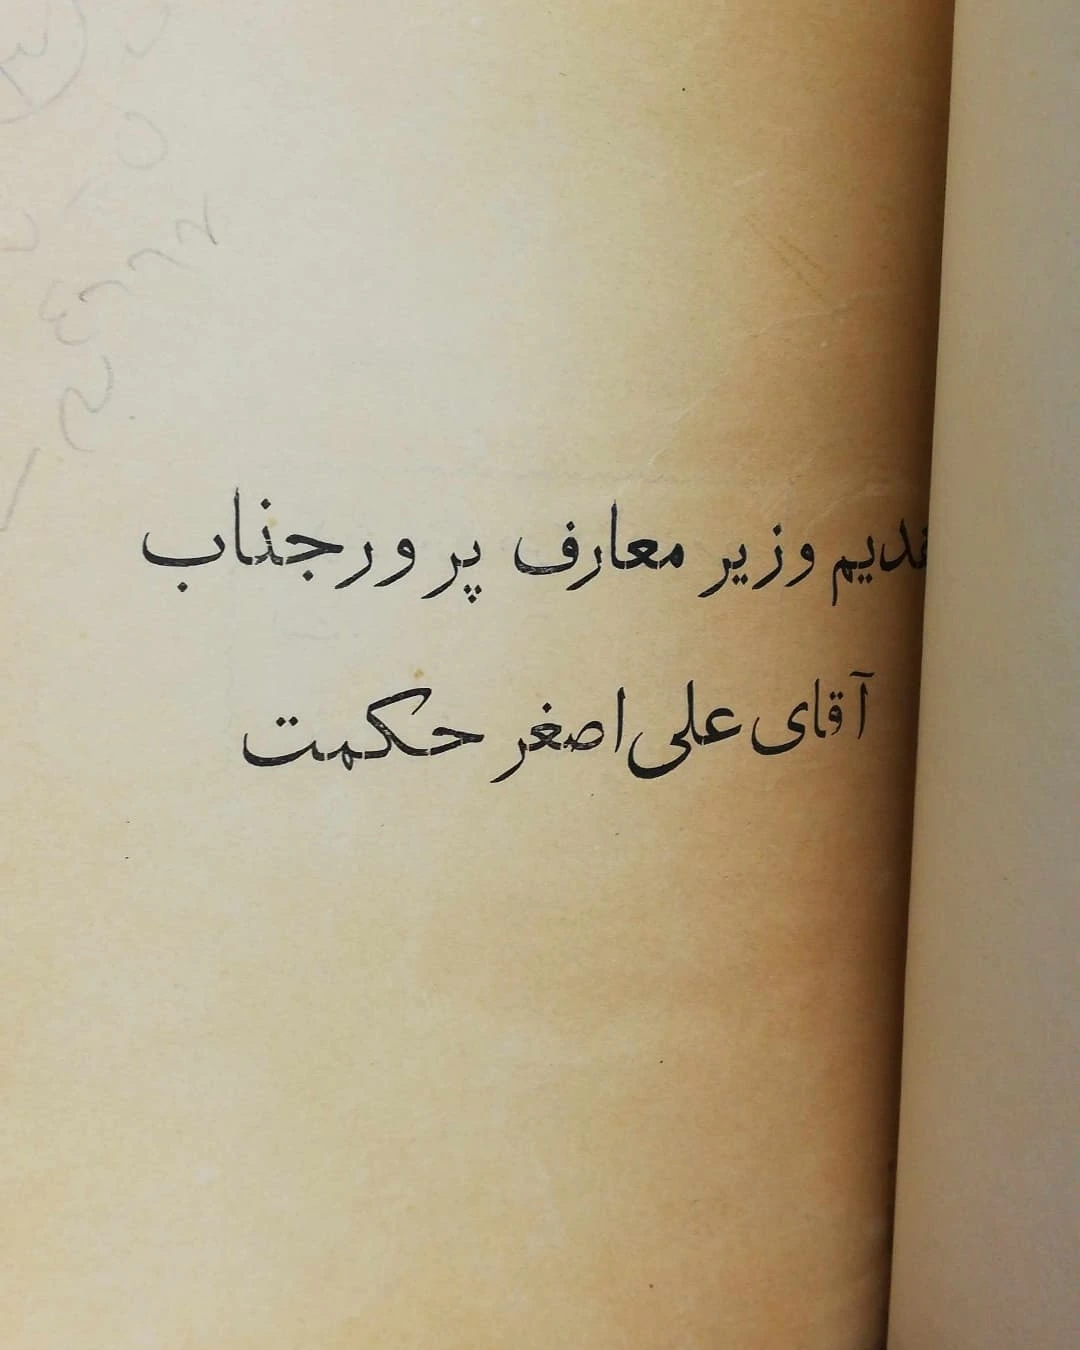 تقدیم وزیر معارف پرور جناب
آقای علی اصغر حکمت